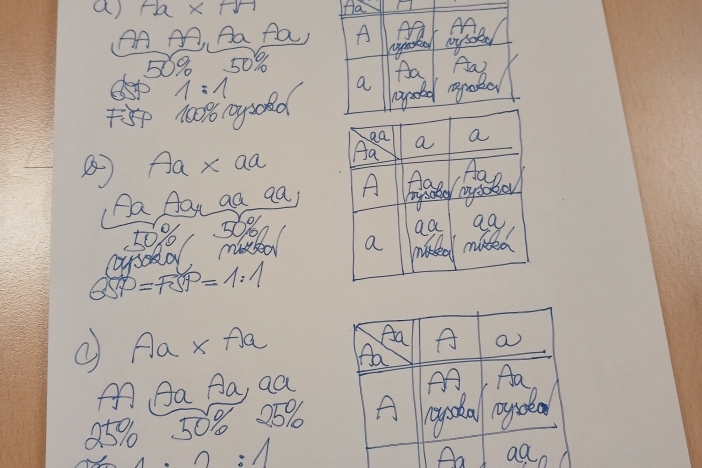 a) Aa × AA
AA AA Aa Aa
50% 50%
GŠP 1:1
FŠP 100% vysoká
Aa
A AA vysoká AA vysoká
a Aa vysoká Aa vysoká
b) Aa × aa
Aa Aa aa aa
50% 50%
vysoká nízká
GŠP = FŠP = 1:1
aa a a
Aa
A Aa vysoká Aa vysoká
a aa nízká aa nízká
c) Aa × Aa
AA Aa Aa aa
25% 50% 25%
1 : 2 : 1
Aa A a
Aa
A AA vysoká Aa vysoká
Aa aa